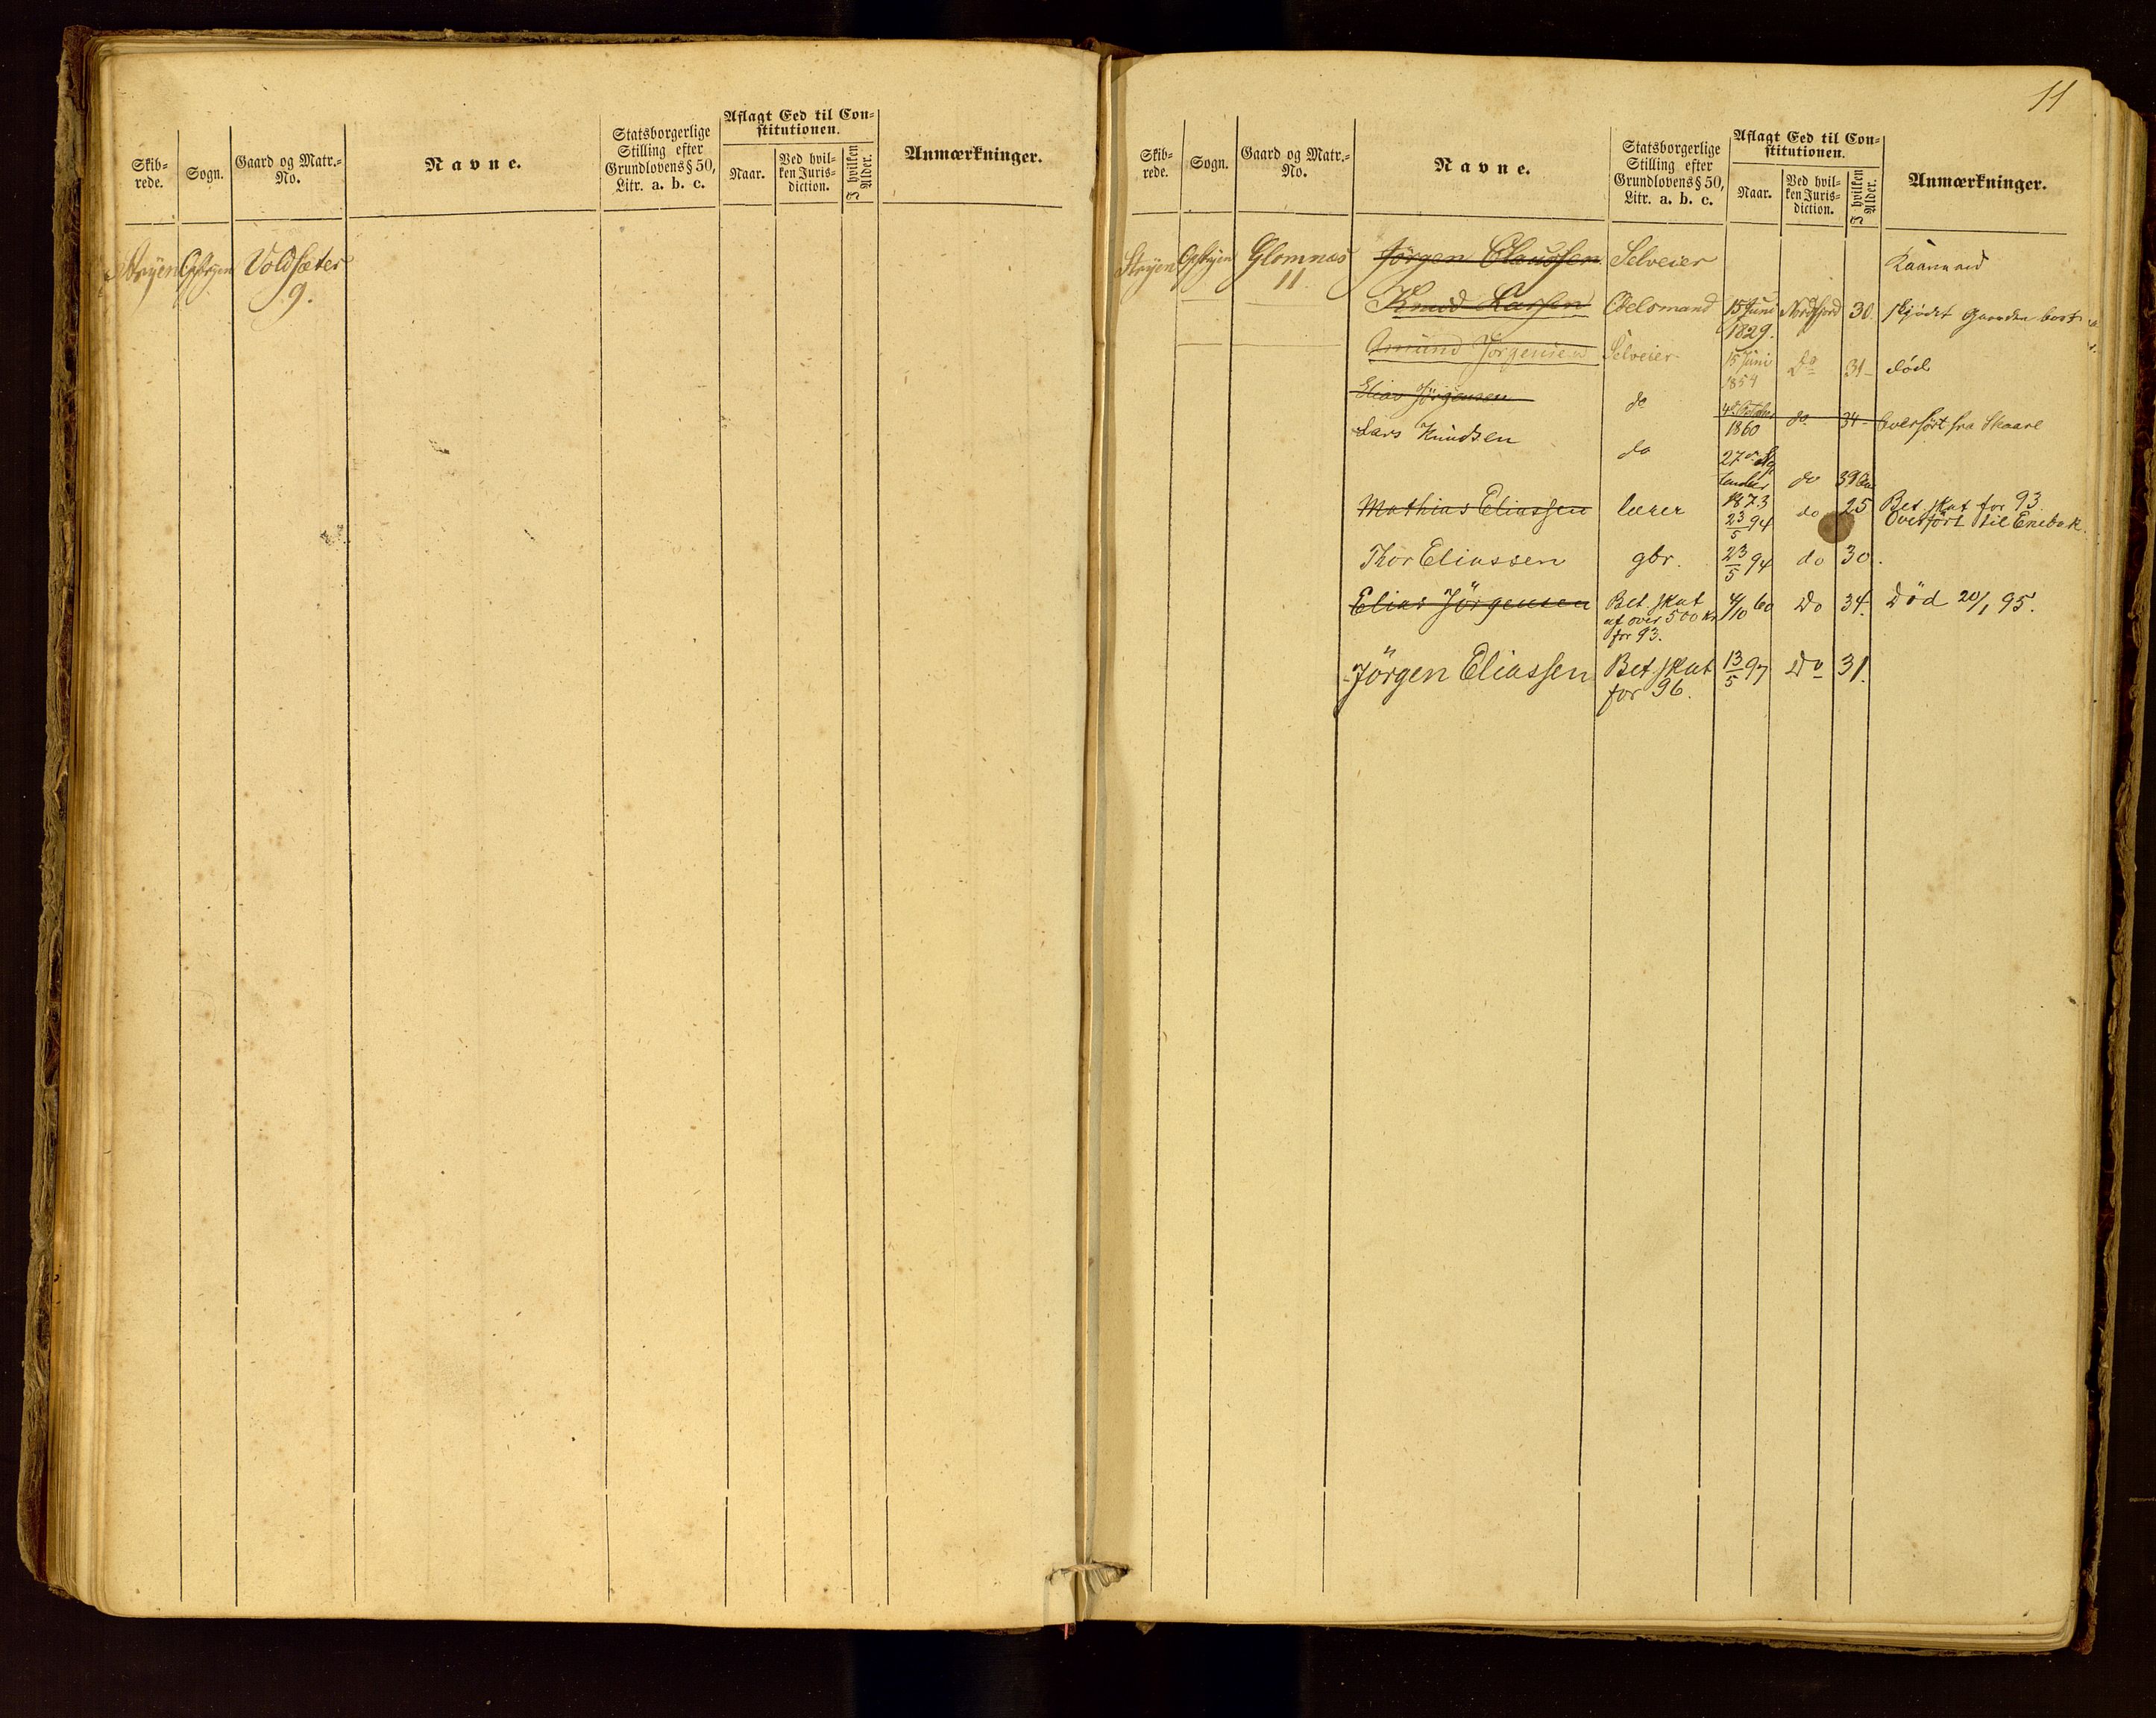 Skib-
rede.
Sogn.
Gaard og Matr.-
No.
Navne.
Statsborgerlige
Stilling efter
Grundlovens § 50,
Litr. a. b. c.
Aflagt Eed til Con-
stitutionen.
Naar.
Ved hvil-
ken Juris-
diction.
I hvilken
Alder.
Anmærkninger.
Stryen Opstryen Voldsæter
9.
11
Skib-
rede.
Sogn.
Gaard og Matr.-
No.
Navne.
Statsborgerlige
Stilling efter
Grundlovens § 50,
Litr. a. b. c.
Aflagt Eed til Con-
stitutionen.
Naar.
Ved hvil-
ken Juris-
diction.
I hvilken
Alder.
Anmærkninger.
Stryen Opstryen Glomnæs Jörgen Claussen Selveier Kaarmand
11
Knud Larsen Odelsmand 15 Juni Nordfjord 30. skjødet Gaarden bort
1829.
Amund Jörgensen Selveier 15 Juni Do 31 død
1854
Elias Jörgensen do 4de October do 34 Overført fra Skaare
1860
Lars Knudsen do 27de Sep
tember do 39 Aar
1873
Mathias Eliassen lærer 23/5 94 do 25 Bet skat for 93
Overført til Enebak.
Thor Eliassen gbr. 23/5 94 do 30.
Elias Jörgensen Bet. skat 4/10 60 Do 34. Död 20/1 95.
af over 500 Kr
for 93.
Jörgen Eliassen Bet skat 13/5 97 Do 31.
for 96.